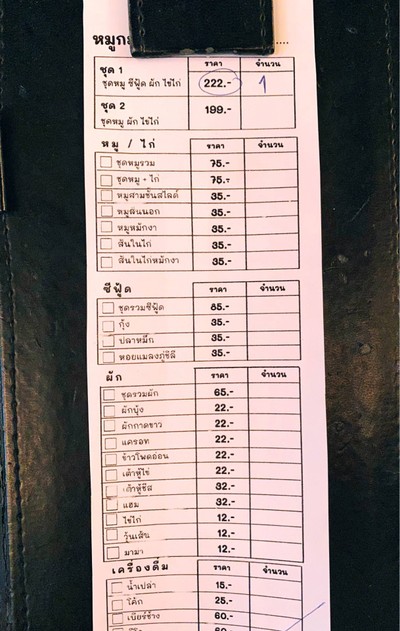 ราคา จำนวน
ชุด 1
ชุดหมู ซีฟู้ด ผัก ไข่ไก่ 222.- 1
ชุด 2 199.-
ชุดหมู ผัก ไข่ไก่
หมู / ไก่ ราคา จำนวน
ชุดหมูรวม 75.-
ชุดหมู + ไก่ 75.-
หมูสามชั้นสไลด์ 35.-
หมูสันนอก 35.-
หมูหมักงา 35.-
สันในไก่ 35.-
สันในไก่หมักงา 35.-
ซีฟู้ด ราคา จำนวน
ชุดรวมซีฟู้ด 85.-
กุ้ง 35.-
ปลาหมึก 35.-
หอยแมลงภู่ชิลี 35.-
ผัก ราคา จำนวน
ชุดรวมผัก 65.-
ผักบุ้ง 22.-
ผักกาดขาว 22.-
แครอท 22.-
ข้าวโพดอ่อน 22.-
เต้าหู้ไข่ 22.-
เต้าหู้ชีส 32.-
แฮม 32.-
ไข่ไก่ 12.-
วุ้นเส้น 12.-
มาม่า 12.-
เครื่องดื่ม ราคา จำนวน
น้ำเปล่า 15.-
โค้ก 25.-
เบียร์ช้าง 60.-